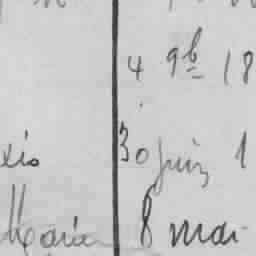 4 9b 18
xis 30 juin 1
Maria 8 mai